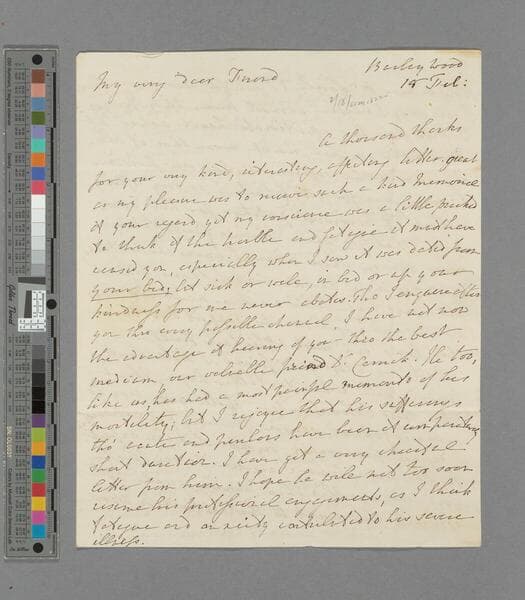 Barley Wood
My very dear Friend
15 Feb:
a thousand thanks
for your very kind, interesting, affecting letter, great
as my pleasure was to receive such a kind Memorial
of your regard yet my conscience was a little pricked
to think of the trouble and fatigue it must have
caused you, especially when I saw it was dated from
your bed; but sick or well, in bed or up your
kindness for me never abates. Tho' I enquire after
you thro every possible channel I have not now
the advantage of hearing of you thro the best
medium, our valuable friend Dr. He too,
like us, has had a most painful memento of his
mortality; but I rejoice that his sufferings
tho' acute and perilous have been of comparatively
short duration. I have got a very cheerful
letter from him. I hope he will not too soon
resume his professional engagements, as I think
fatigue and anxiety contributed to his severe
illness.